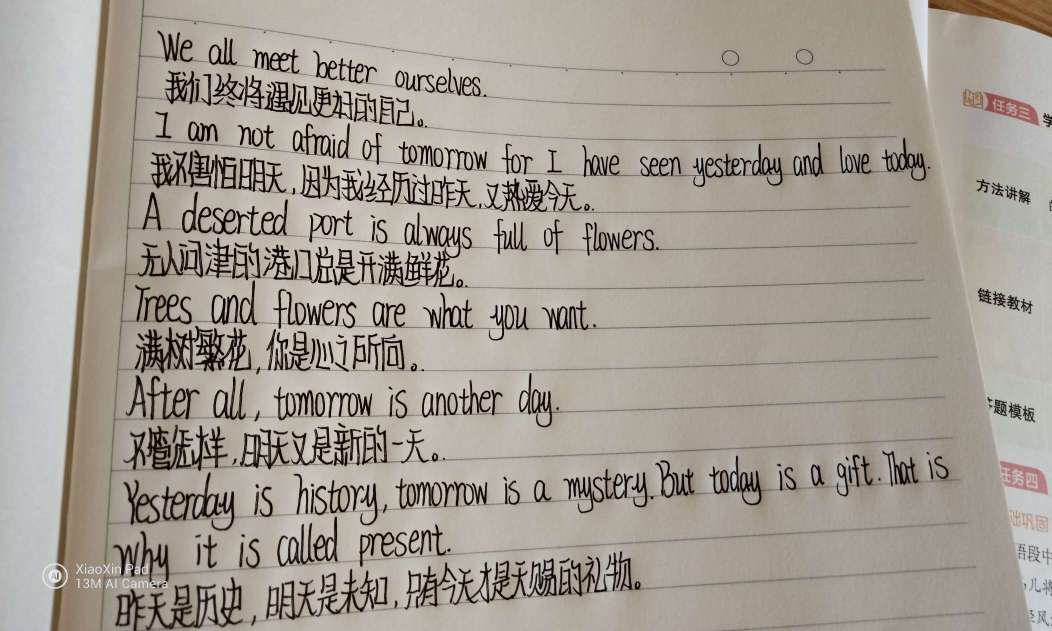 We all meet better ourselves.
我们终将遇见更好的自己。
I am not afraid of tomorrow for I have seen yesterday and love today.
我不害怕明天,因为我经历过昨天,又热爱今天。
A deserted port is always full of flowers.
无人问津的港口总是开满鲜花。
Trees and flowers are what you want.
满树繁花,你是心之所向。
After all, tomorrow is another day.
不管怎样,明天又是新的一天。
Yesterday is history, tomorrow is a mystery. But today is a gift. That is
why it is called present.
昨天是历史,明天是未知,只有今天才是天赐的礼物。
XiaoXin Pad
13M AI Camera
任务三 学
方法讲解
链接教材
答题模板
任务四
础巩固
语段中
儿将